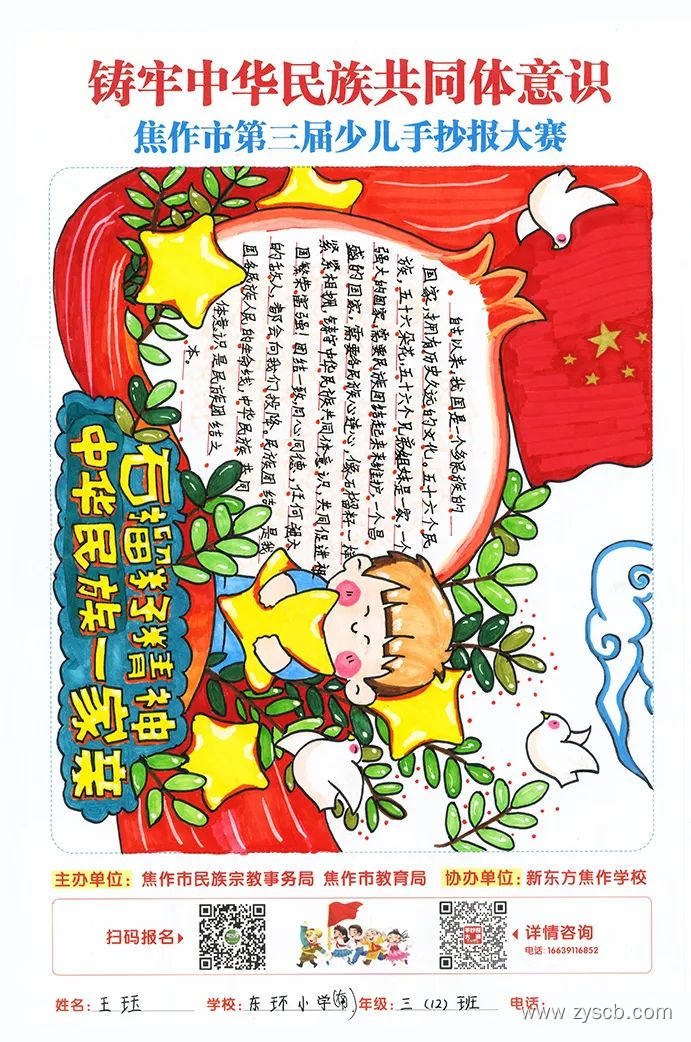 铸牢中华民族共同体意识
焦作市第三届少儿手抄报大赛
石榴籽精神
中华民族一家亲
自古以来,我国是一个多民族的
国家,拥有历史久远的文化。五十六个民
族,五十六朵花,五十六个兄弟姐妹是一家,一个
强大的国家,需要民族团结起来来维护,一个昌
盛的国家,需要各民族心连心,像石榴籽一样
紧紧相拥,铸牢中华民族共同体意识,共同促进祖
国繁荣富强!团结一致,同心同德,任何强大
的敌人,都会向我们投降,民族团结,是我
国各民族人民的生命线,中华民族共同
体意识是民族团结之
本。
主办单位: 焦作市民族宗教事务局 焦作市教育局 协办单位: 新东方焦作学校
扫码报名
详情咨询
电话: 16639116852
姓名: 王 学校: 东环小学(南) 年级: 三 (12) 班 电话:
www.zyscb.com